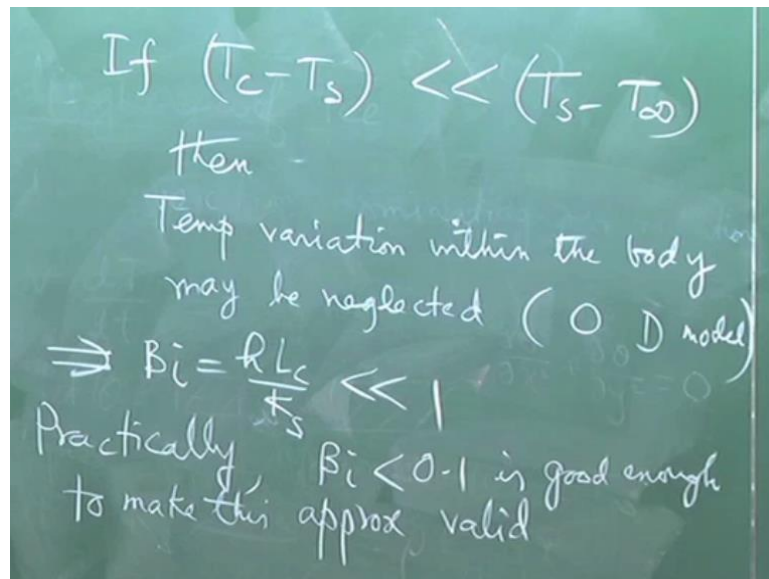 If (Tc - Ts) << (Ts - T∞)
then
Temp variation within the body
may be neglected (0 D model)
⇒ Bi = hLc/Ks << 1
Practically, Bi < 0.1 is good enough
to make this approx valid